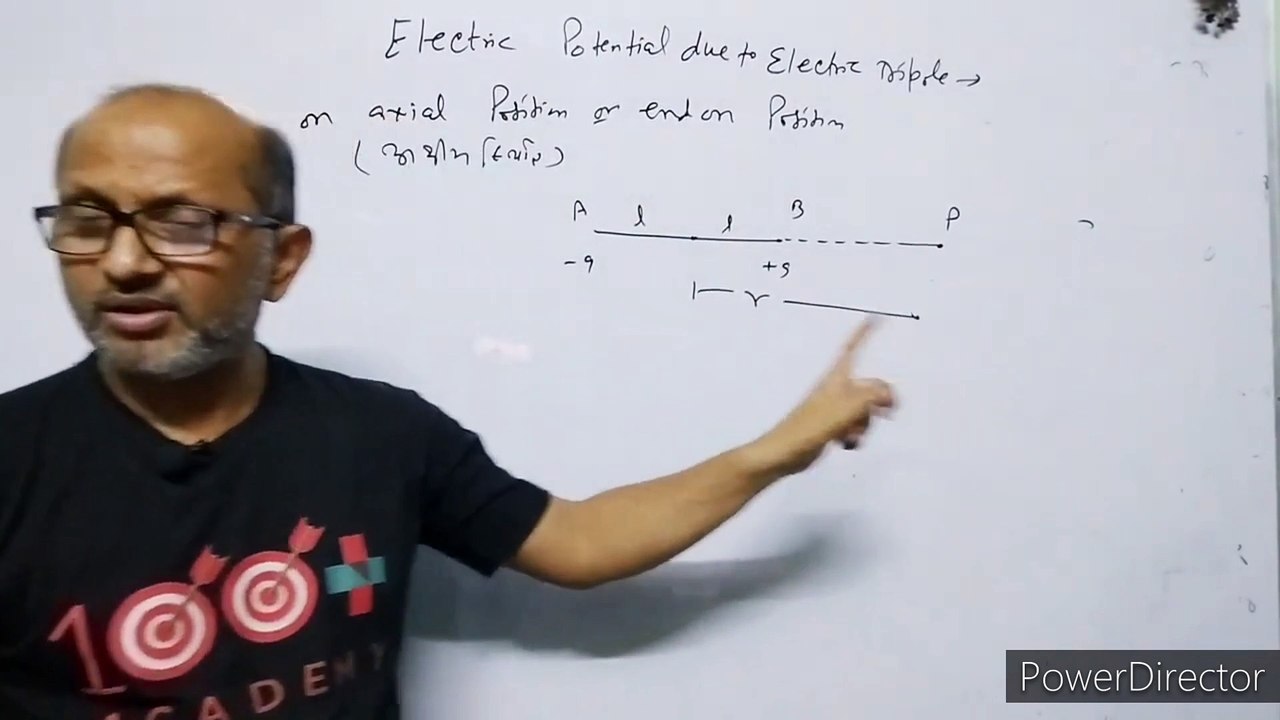 Electric Potential due to Electric Dipole →
on axial Position or end on Position
(अक्षीय स्थिति)
A l l B P
-q +q
r
100+
ACADEMY
PowerDirector